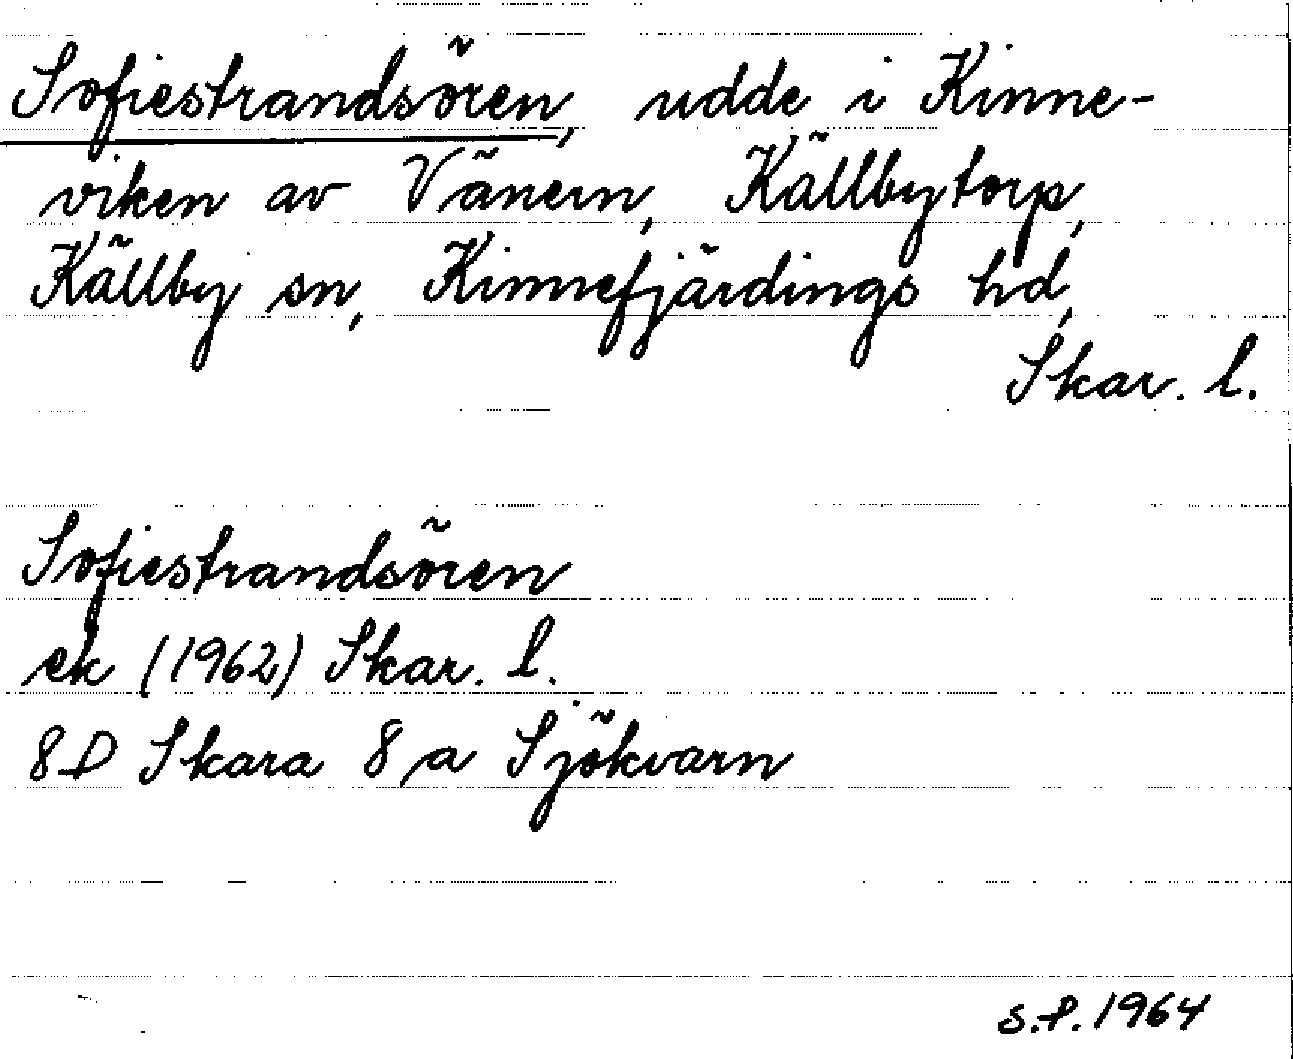 Sofiestrandsören, udde i Kinne-
viken av Vänern, Källbytorp,
Källby sn, Kinnefjärdings hd,
Skar. l.
Sofiestrandsören
ek (1962) Skar. l.
8D Skara 8 a Sjökvarn
S.P. 1964